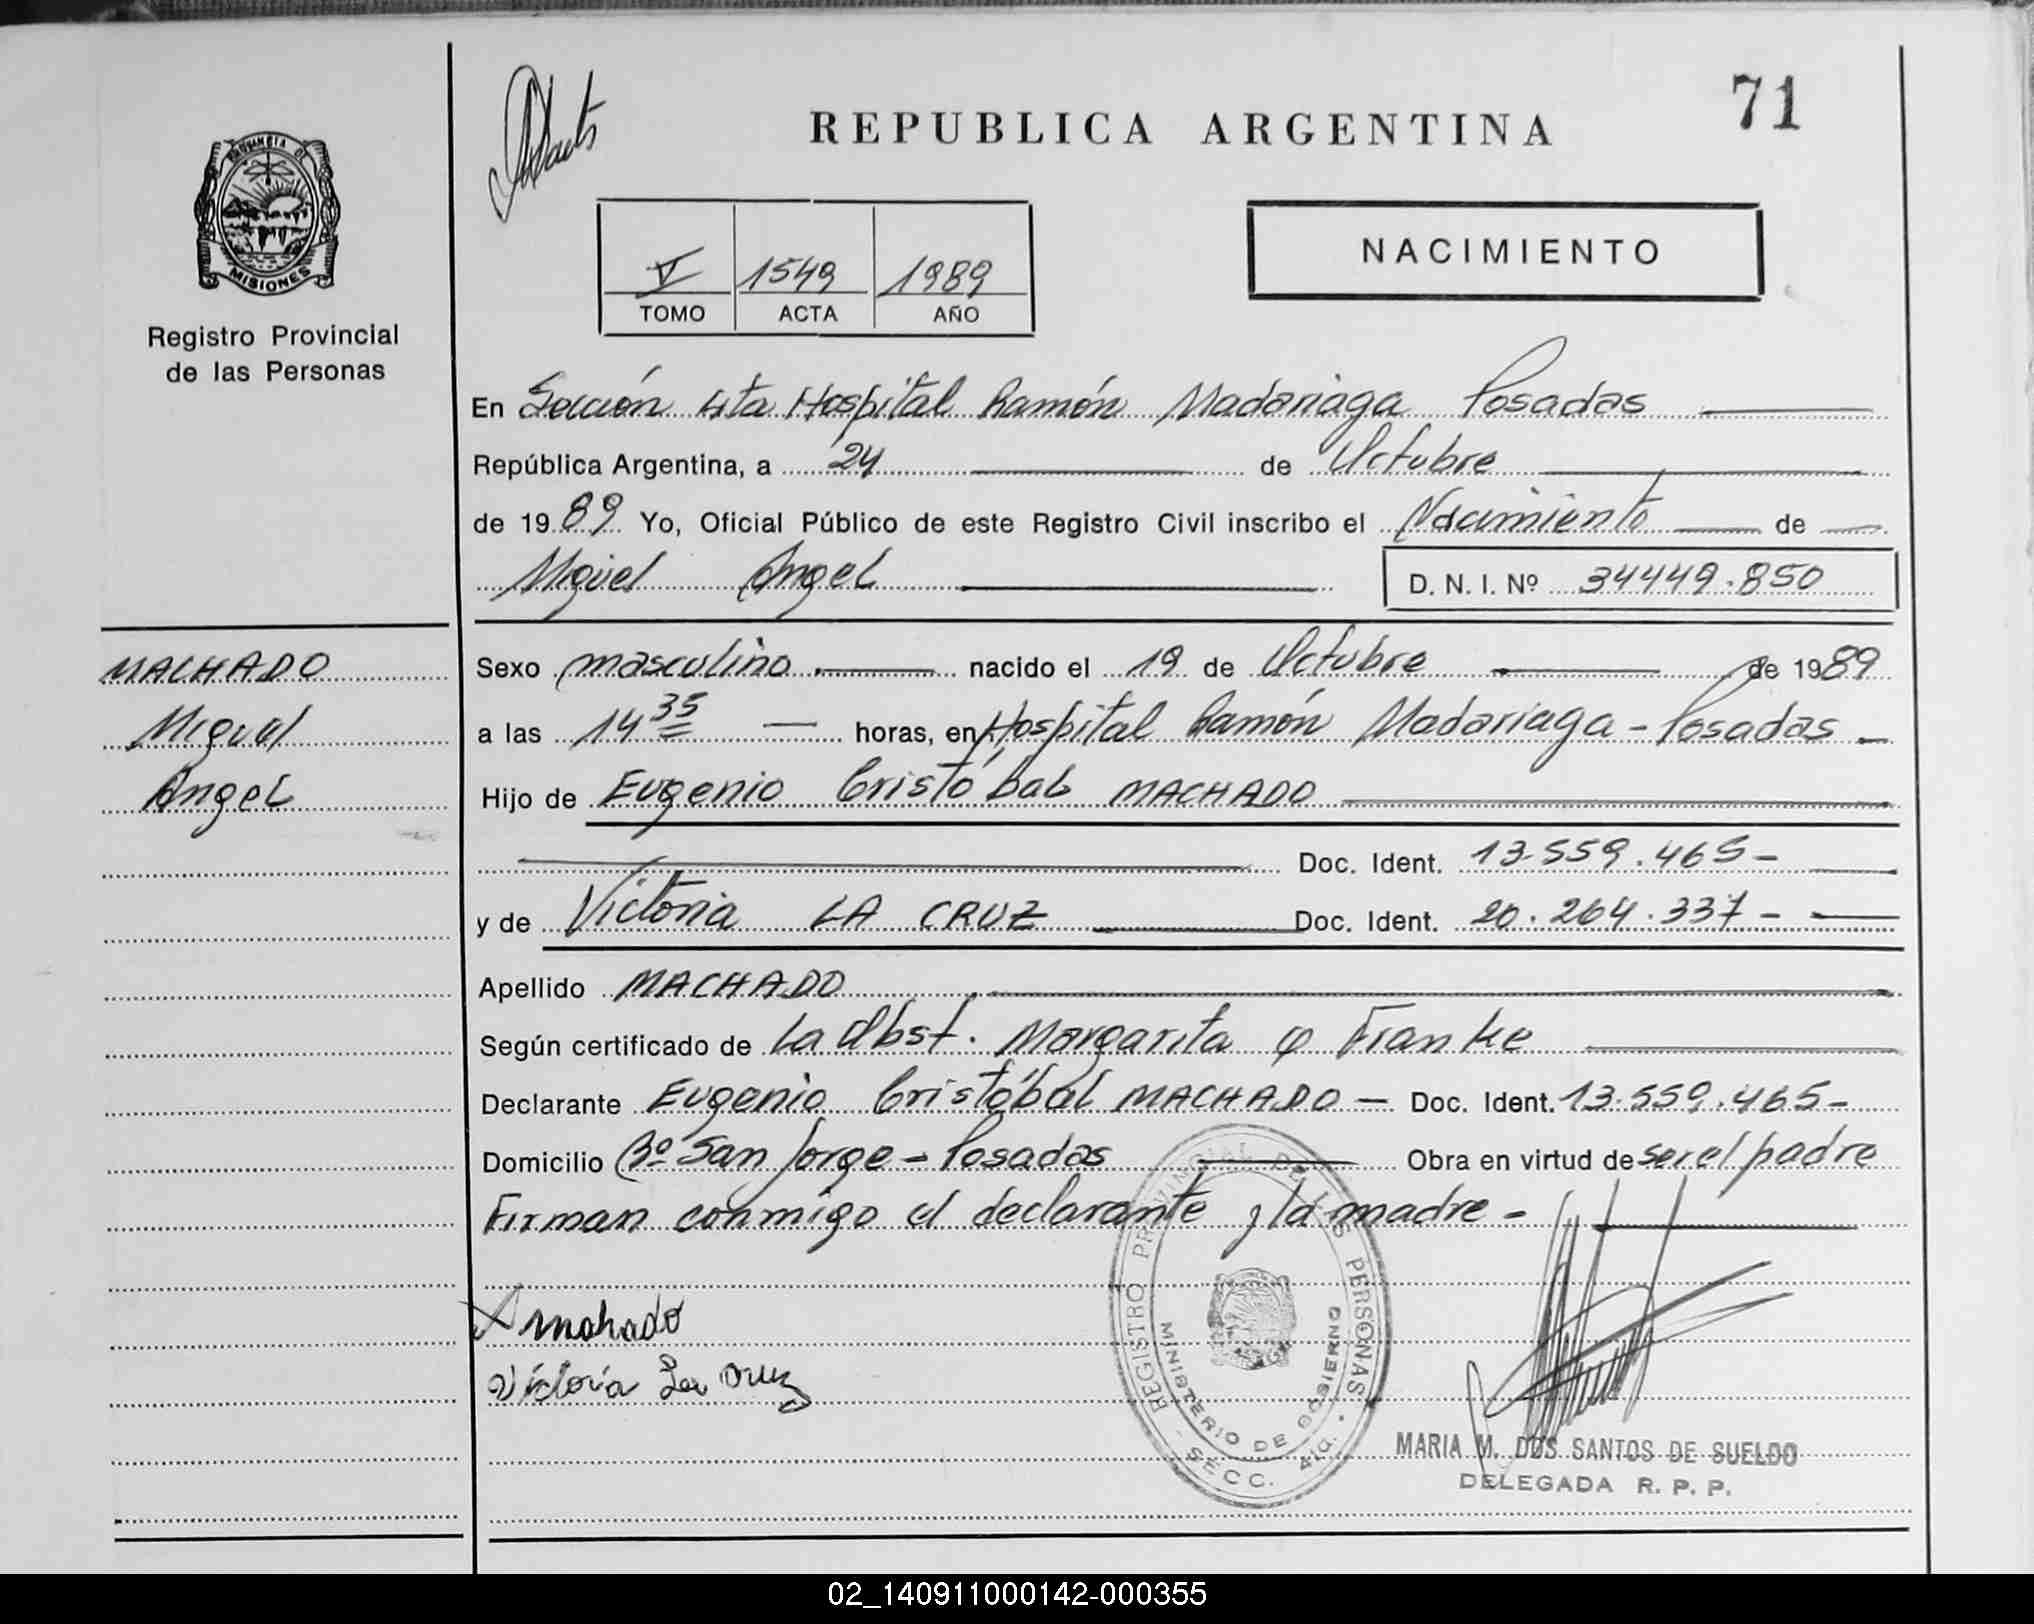 71
REPUBLICA ARGENTINA
NACIMIENTO
V 1549 1989
TOMO ACTA AÑO
PROVINCIA DE
MISIONES
Registro Provincial
de las Personas
En Sección 4ta Hospital Ramón Madariaga Posadas
República Argentina, a 24 de Octubre
de 1989 Yo, Oficial Público de este Registro Civil inscribo el Nacimiento de
Miguel Angel D. N. I. Nº 34449.850
MACHADO
Miguel
Angel
Sexo masculino nacido el 19 de Octubre de 1989
a las 14 35 horas, en Hospital Ramón Madariaga - Posadas
Hijo de Eugenio Cristóbal MACHADO
Doc. Ident. 13.559.465-
y de Victoria LA CRUZ Doc. Ident. 20.264.337-
Apellido MACHADO
Según certificado de La Obst. Margarita Franke
Declarante Eugenio Cristóbal MACHADO - Doc. Ident. 13.559.465-
Domicilio Bº San Jorge - Posadas Obra en virtud de ser el padre
Firman conmigo el declarante y la madre -
Machado
Victoria La Cruz
REGISTRO PROVINCIAL DE LAS PERSONAS
MINISTERIO DE GOBIERNO
SECC. 4ta.
MARIA M. DOS SANTOS DE SUELDO
DELEGADA R. P. P.
02_140911000142-000355